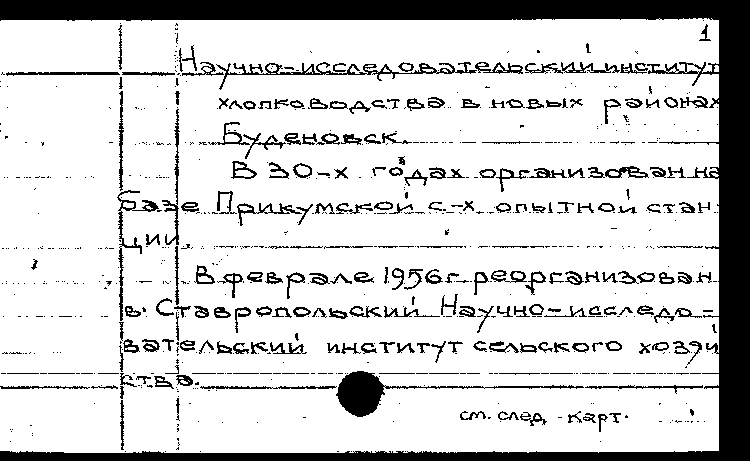 1
Научно-исследовательский институт
хлопководства в новых районах
Буденовск.
В 30-х годах организован на
базе Прикумской с-х опытной стан-
ции.
В феврале 1956г реорганизован
в Ставропольский Научно-исследо-
вательский институт сельского хозяй
ства.
см. след. карт.